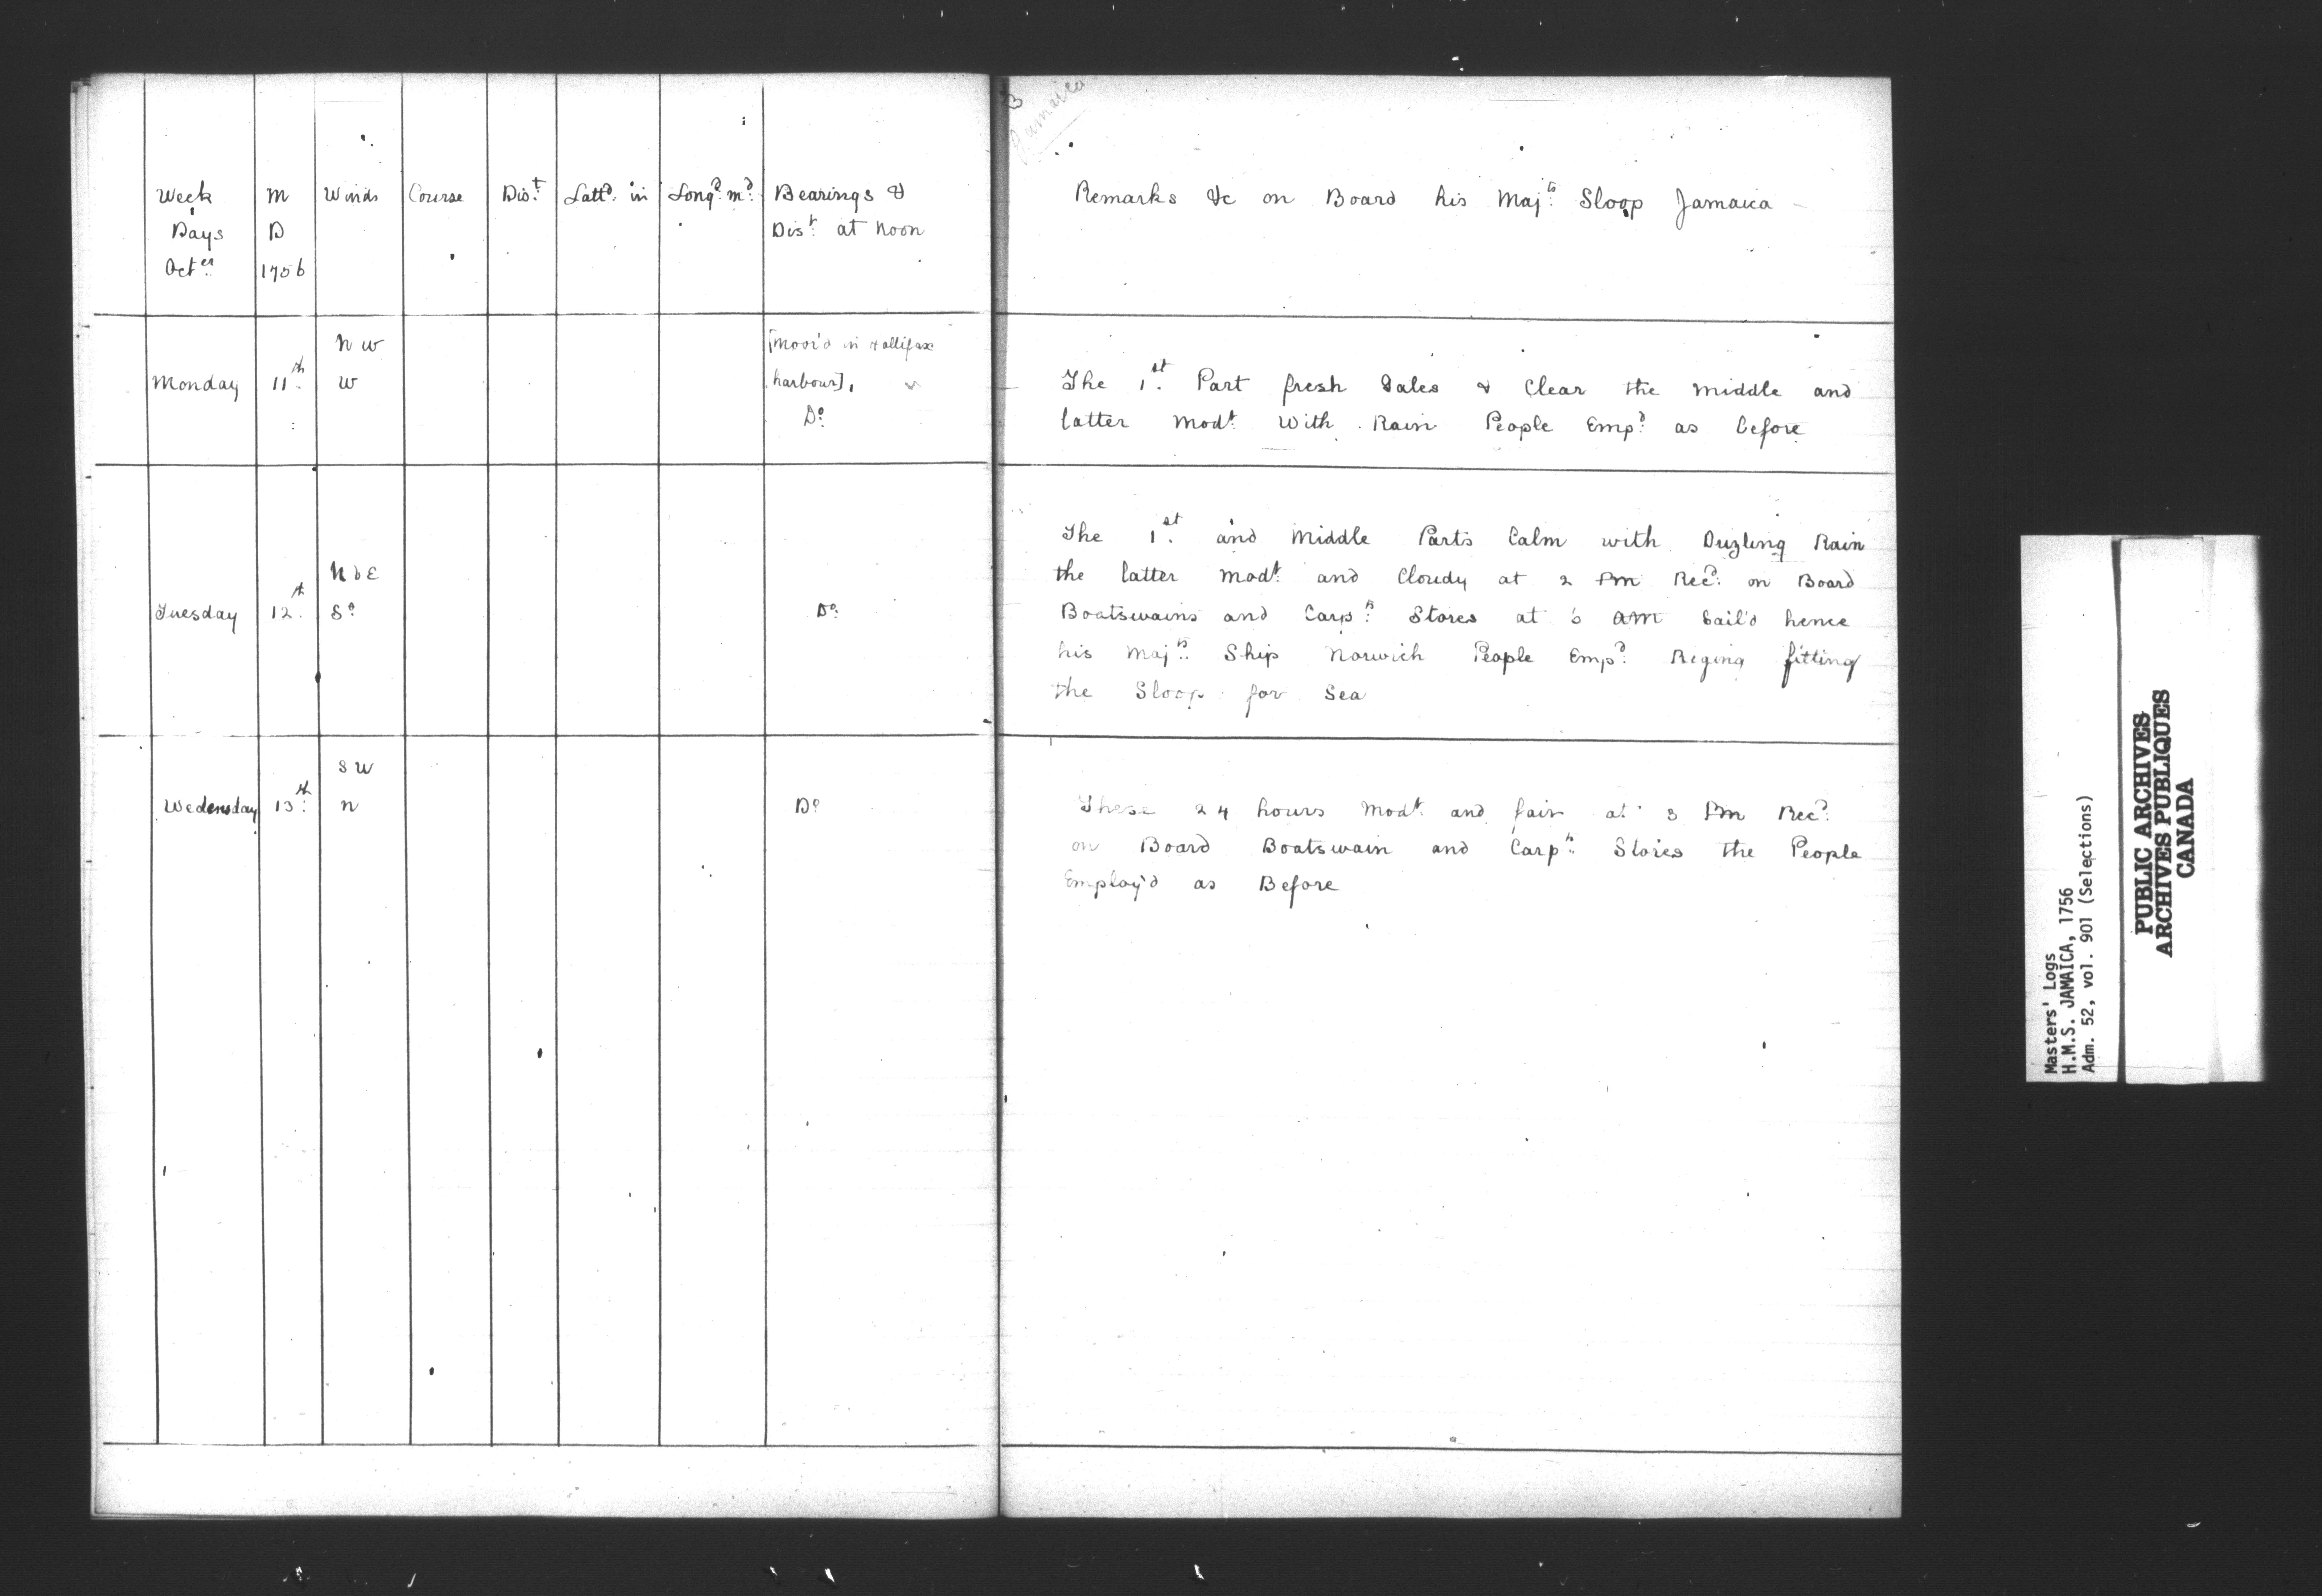 Week M Winds Course Dist. Lattd. in Longd. md. Bearings &
Days D Dist. at Noon
Octer. 1756
NW [Moor'd in Hallifax
Monday 11th. W harbour].
Do.
NbE
Tuesday 12th. So. Do.
SW
Wedensday 13th. N Do.
3
Jamaica
Remarks &c on Board his Majts. Sloop Jamaica
The 1st. Part fresh Gales & Clear the middle and
latter Modt. With Rain People Empd. as before
The 1st. and Middle Parts Calm with Duzling Rain
the latter modt. and Cloudy at 2 PM Recd. on Board
Boatswains and Carprs. Stores at 6 AM Sail'd hence
his Majts. Ship Norwich People Empd. Reging fitting
the Sloop for Sea
These 24 hours Modt. and fair at 3 PM Recd.
on Board Boatswain and Carprs. Stores the People
Employ'd as Before
Masters' Logs
H.M.S. JAMAICA, 1756
Adm. 52, vol. 901 (Selections)
PUBLIC ARCHIVES
ARCHIVES PUBLIQUES
CANADA